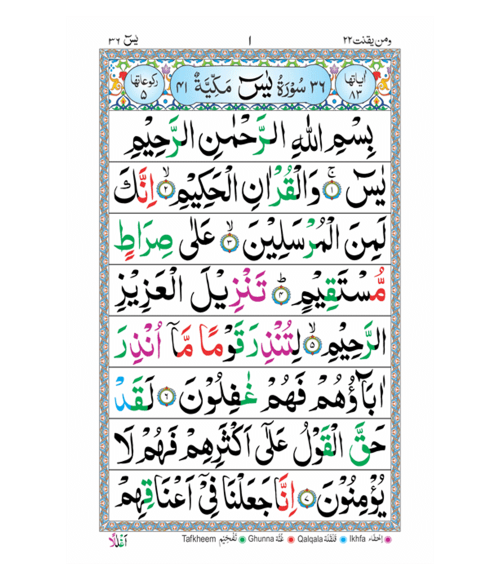 ومن يقنت ٢٢ ١ يٰسٓ ٣٦
اٰیاتها ٨٣ ٣٦ سُوْرَةُ يٰسٓ مَكِّيَّةٌ ٤١ رکوعاتها ٥
بِسْمِ اللّٰهِ الرَّحْمٰنِ الرَّحِيْمِ
يٰسٓ ۚ‏﴿١﴾ وَالْقُرْاٰنِ الْحَكِيْمِ ۙ‏﴿٢﴾ اِنَّكَ
لَمِنَ الْمُرْسَلِيْنَ ۙ‏﴿٣﴾ عَلٰى صِرَاطٍ
مُّسْتَقِيْمٍ ؕ‏﴿٤﴾ تَنْزِيْلَ الْعَزِيْزِ
الرَّحِيْمِ ۙ‏﴿٥﴾ لِتُنْذِرَ قَوْمًا مَّاۤ اُنْذِرَ
اٰبَآؤُهُمْ فَهُمْ غٰفِلُوْنَ ﴿٦﴾ لَقَدْ
حَقَّ الْقَوْلُ عَلٰٓى اَكْثَرِهِمْ فَهُمْ لَا
يُؤْمِنُوْنَ ﴿٧﴾ اِنَّا جَعَلْنَا فِيْۤ اَعْنَاقِهِمْ
Tafkheem تَفْخِيْم Ghunna غُنَّة Qalqala قَلْقَلَة Ikhfa إخفاء